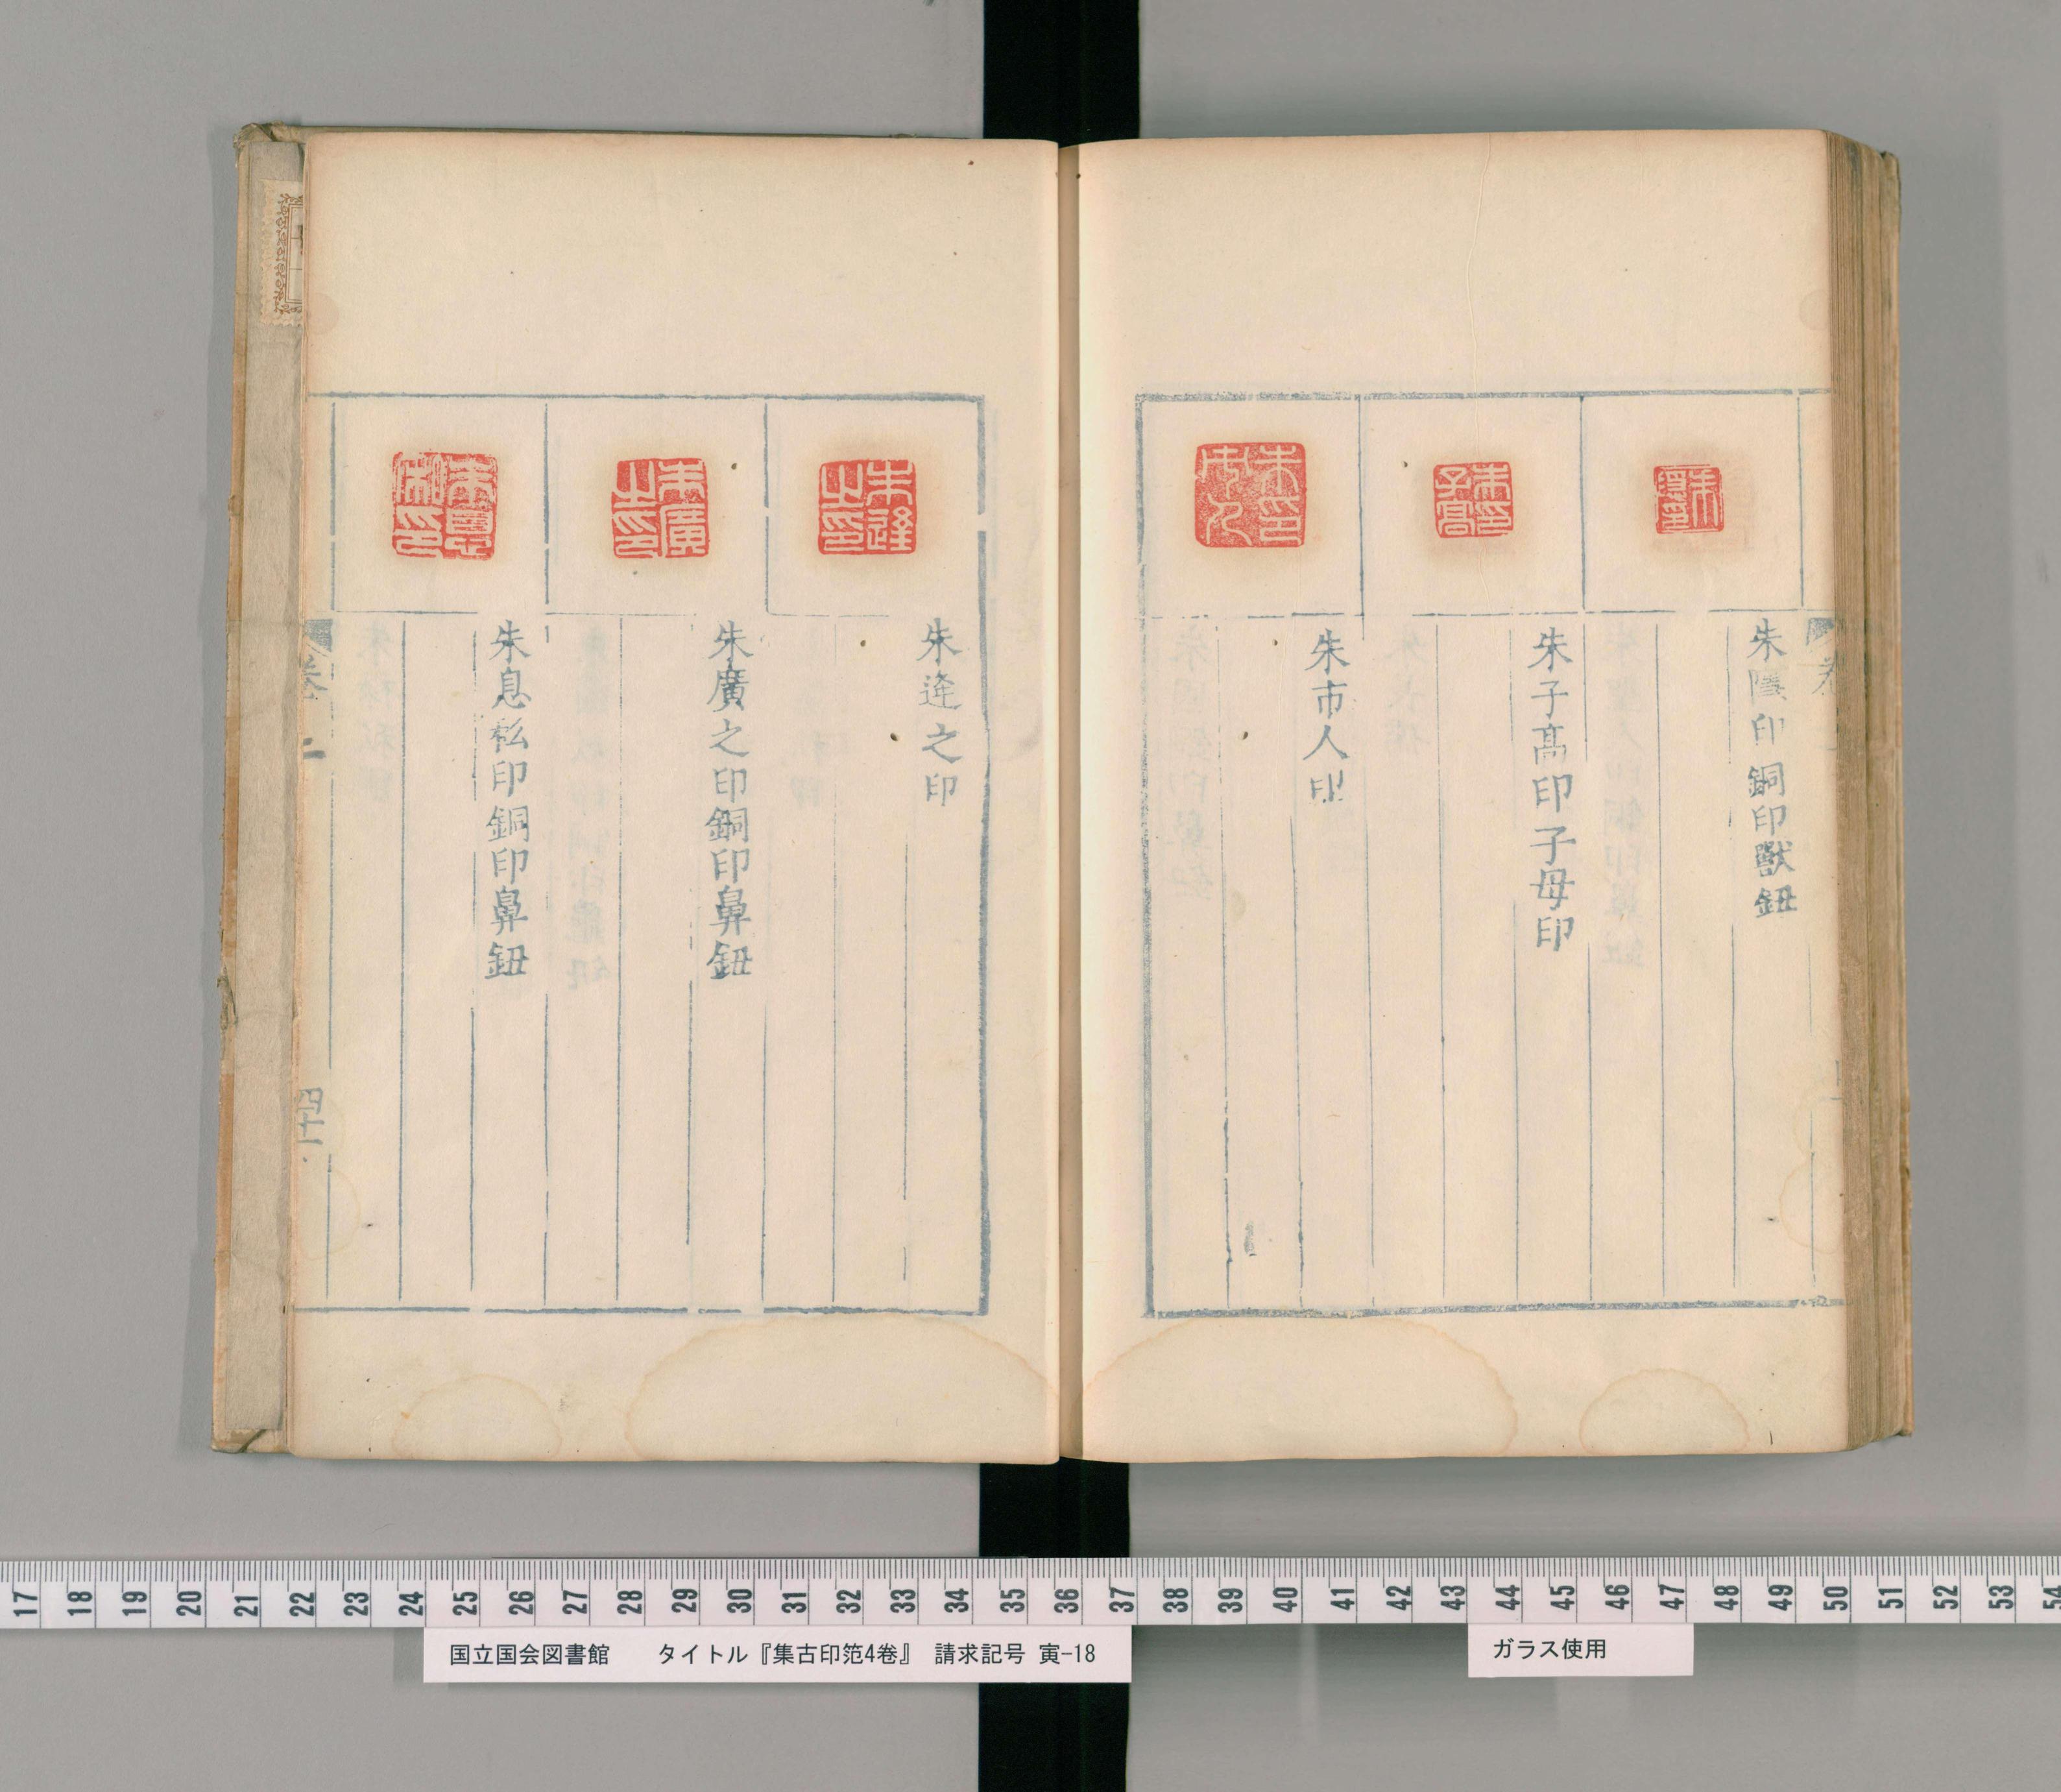 朱隱印銅印獸鈕
朱子髙印子母印
朱市人印
朱逄之印
朱廣之印銅印鼻鈕
朱息私印銅印鼻鈕
卷二
四十一
17 18 19 20 21 22 23 24 25 26 27 28 29 30 31 32 33 34 35 36 37 38 39 40 41 42 43 44 45 46 47 48 49 50 51 52 53 54
国立国会図書館 タイトル『集古印笵4巻』 請求記号 寅-18
ガラス使用